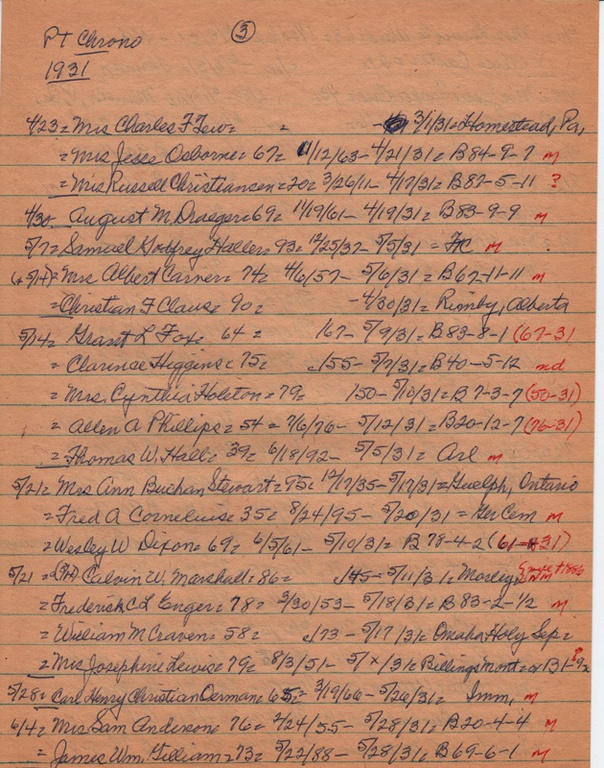 PT Chrono ③
1931
4/23 = Mrs Charles F Lew = = - 3/1/31 = Homestead, Pa,
= Mrs Jesse Osborne = 67 = 11/12/63 - 4/21/31 = B84-9-7 m
= Mrs Russell Christiansen = 20 = 3/26/11 - 4/17/31 = B87-5-11 ?
4/30 August M. Draeger = 69 = 11/19/61 - 4/19/31 = B83-9-9 m
5/7 = Samuel Godfrey Haller = 93 = 12/25/37 - 5/5/31 = FC m
(+ 5/14) = Mrs Albert Carner = 74 = 4/6/57 - 5/6/31 = B67-11-11 m
= Christian F Claus = 90 = - 4/30/31 = Rimby, Alberta
5/14 = Grant L Fox = 64 = 167 - 5/9/31 = B83-8-1 (67-31
= Clarence Higgins = 75 = c155 - 5/7/31 = B40-5-12 nd
= Mrs. Cynthia Holeton = 79 = 150 - 5/10/31 = B7-3-7 (50-31)
= Allen A Phillips = 54 = 7/6/76 - 5/12/31 = B20-12-7 (76-31)
= Thomas W. Hall = 39 = 6/18/92 - 5/5/31 = Arl m
5/21 = Mrs Ann Buchan Stewart = 75 = 12/17/35 - 5/17/31 = Guelph, Ontario
= Fred A Cornelius = 35 = 8/24/95 - 5/20/31 = Ger Cem m
= Wesley W Dixon = 69 = 6/5/61 - 5/10/31 = B 78-4-2 (61-31)
5/21 = Calvin W. Marshall = 86 = c145 - 5/11/31 = Mosley
= Frederick C L Enger = 78 = 3/30/53 - 5/18/31 = B83-2-1/2 m
= William M Craven = 58 = c173 - 5/17/31 = Omaha Holy Sep =
= Mrs Josephine Lewis = 79 = 8/3/51 - 5/x/31 = Billings Mont =
5/28 = Carl Henry Christian Oerman = 65 = 3/19/66 - 5/26/31 = Imm, m
6/4 = Mrs Sam Anderson = 76 = 2/24/55 - 5/28/31 = B20-4-4 m
= James Wm. Gilliam = 73 = 5/22/88 - 5/28/31 = B69-6-1 m